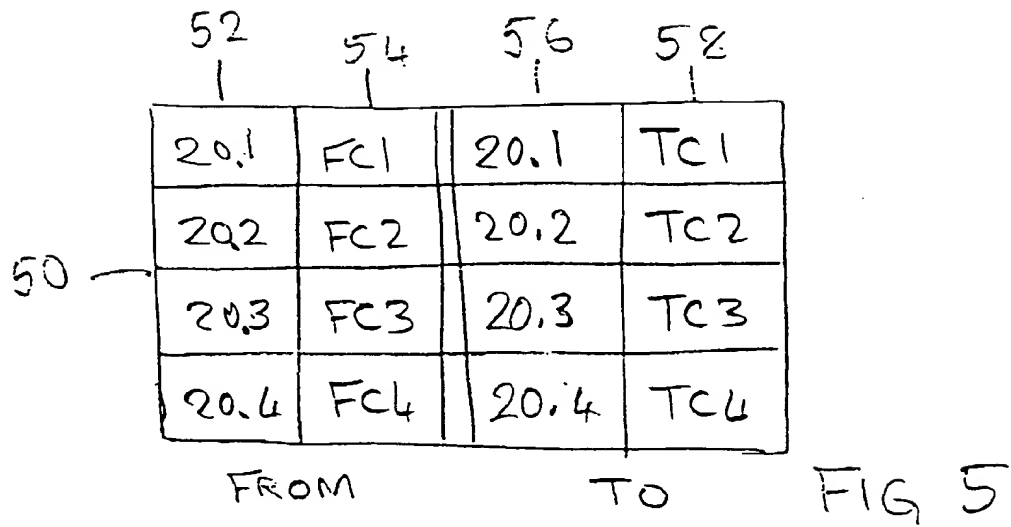 52 54 56 58
20.1 FC1 20.1 TC1
20.2 FC2 20.2 TC2
50
20.3 FC3 20.3 TC3
20.4 FC4 20.4 TC4
FROM TO FIG 5